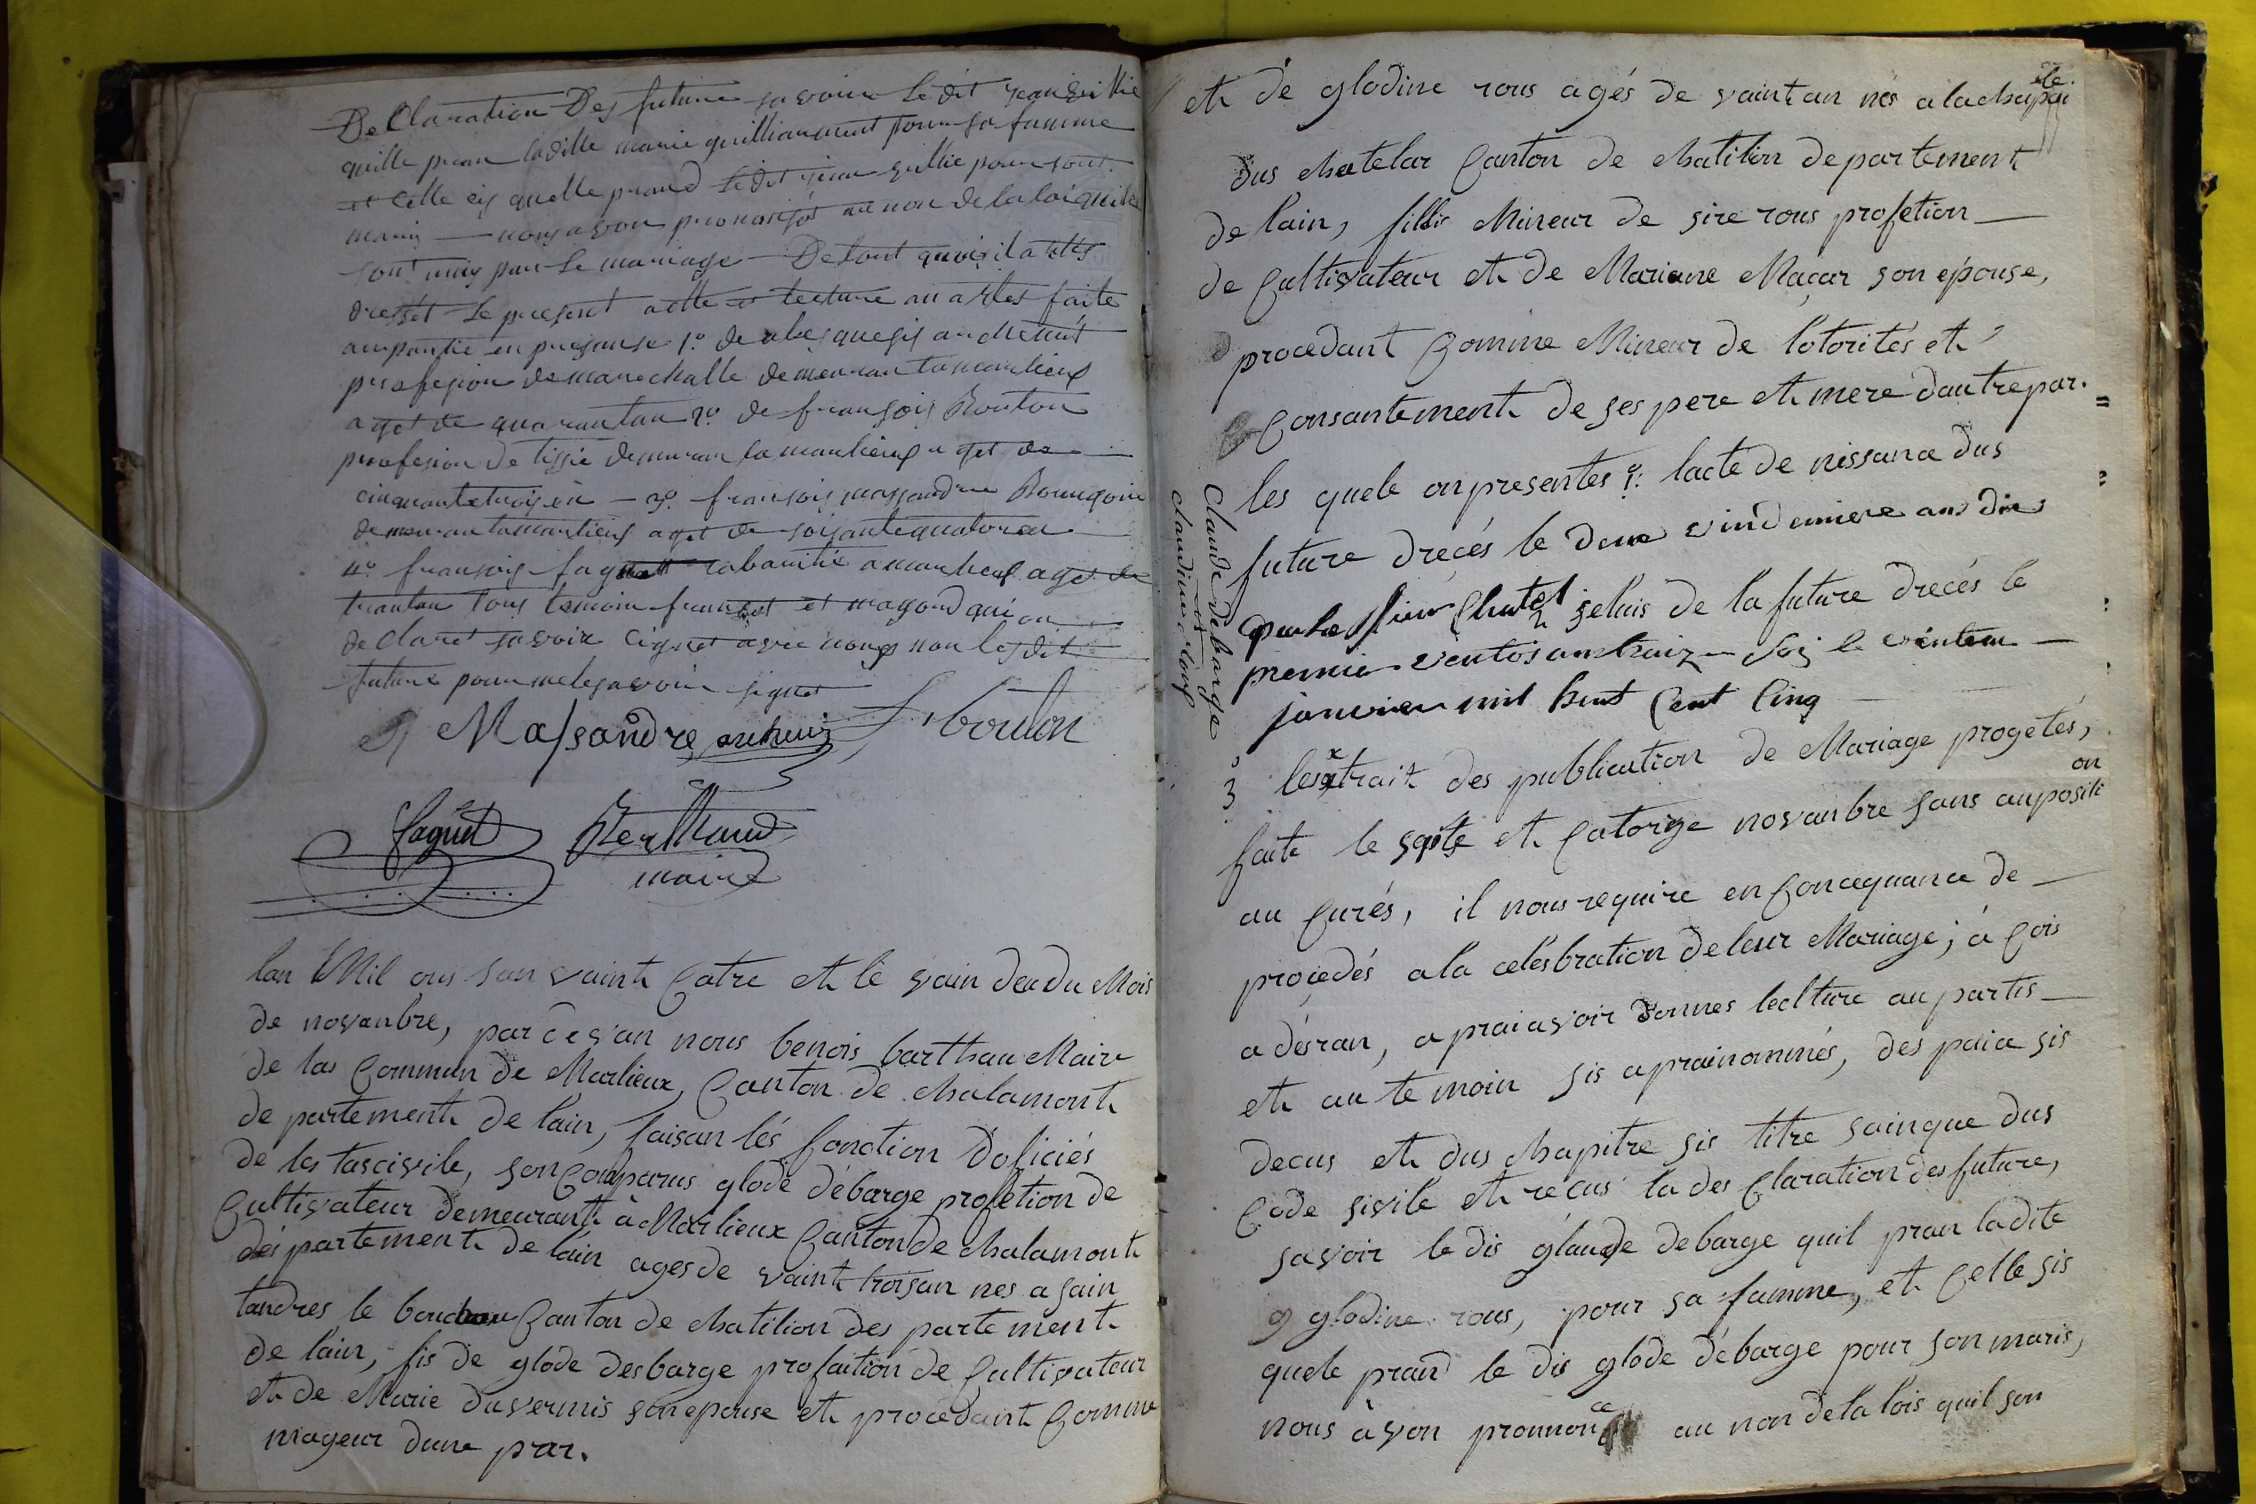 De Claration Des future savoire le dit jean guillie
quille pran ladille marie guilliaumint pour sa famme
et celle cy quelle prand le dit jean guillie pour sont
mariy — nousavon prononsés au non de la loi quile
sont unis par le mariage — De tout quoi il a ettés
dressét le present atte et lecture an a ettes faite
au partie en presanse 1.º de
profesion de marechalle demeurant a marlieux
aget de quarantan 2.º de fransois Bouton
profesion de tissie demeuran a marlieux aget de
cinquantetrois an — 3.º fransois massandre Bourgoin
demeurantamarlieux aget de soisantequatorsan
4.º fransois faguet cabaritie a marlieux aget de
trantan tous temoin et qui on
de claret savoir cignet avec nous non lesdit
future pour nele savoir signet
Massandre F. bouton
faguet Berthaud
maire
lan Mil ouis san vaint Catre et le vain deu du Mois
de novanbre, par de s'an nous benois barthau Maire
de las Commun de Marlieux, Canton de chalamont
de partement de l'ain, faisan lés fonction D'oficiés
de les tascivile, son Comparus glode débarge profetion de
Cultivateur demeurant à Marlieux Canton de chalamont
dés partement de l'ain ages de vaint troisan nes a sain
tandres le bouchou Canton de chatilion des partement
de l'ain, fis de glode desbarge profaition de Cultivateur
et de Marie duvernis son epouse et procedant Comme
mageur dune par.
et de glodine rous agés de vaint an nés a la chapele
dus chatelar Canton de chatilion departement
de lain, fillis Mineur de sire rous profetion —
de Cultivateur et de Mariane Maçar son épouse,
procedant Comme Mineur de l'otorités et
Consantement de ses pere et mere dautre par.
les quele on presentes 1.º: lacte de nissance dus
future drecés le deux vindemiere ans dix
par le sieur Chatel 2 selais de la future drecés le
premier ventos an traiz — soi le vinteun —
janvier mil huit Cent Cinq —
3º lextrait des publication de Mariage progetés,
faite le sgite et Catorze novanbre sans auposition
au Curés, il nous require en Concequance de —
proçedés a la celesbration de leur Mariage; à Cois
a désran, a prai avoir donnes leclture au partis —
et au te moin sis aprainommés, des paice sis
decus et dus chapitre sis titre sainque dus
Code sivile et recus la des Claration des future,
savoir le dis glaude debarge quil pran ladite
glodine rous, pour sa famme, et Celle sis
quele prand le dis glode débarge pour son maris,
nous àvon pronnoncé au non de la lois quil son
Claude debarge
et
claudine rous